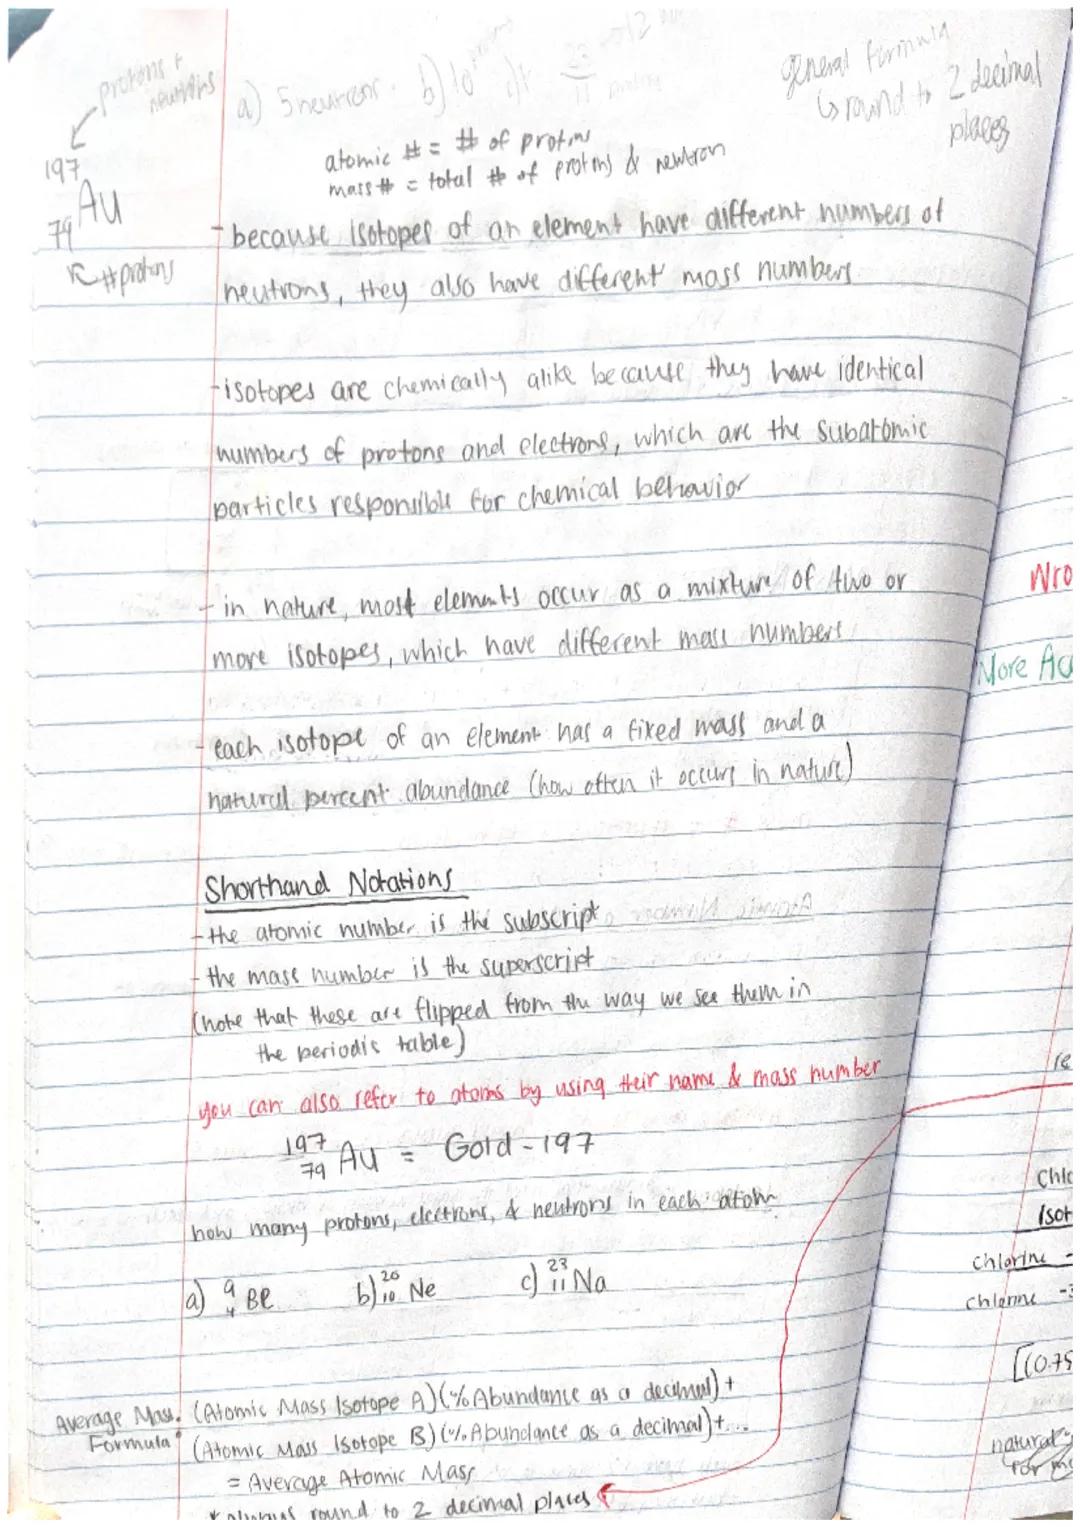 protons +
neutrons
a) 5 neutrons b) 10
general formula
↳ round to 2 decimal
places
197
79 Au
# protons
atomic # = # of protons
mass # = total # of protons & neutron
- because isotopes of an element have different numbers of
neutrons, they also have different mass numbers
- isotopes are chemically alike because they have identical
numbers of protons and electrons, which are the subatomic
particles responsible for chemical behavior
- in nature, most elements occur as a mixture of two or
more isotopes, which have different mass numbers
- each isotope of an element has a fixed mass and a
natural percent abundance (how often it occurs in nature)
Shorthand Notations
- the atomic number is the subscript
- the mass number is the superscript
(note that these are flipped from the way we see them in
the periodic table)
you can also refer to atoms by using their name & mass number
197
79 Au = Gold - 197
how many protons, electrons, & neutrons in each atom
a) 9 4 Be b) 20 10 Ne c) 23 11 Na
Average Mass Formula: (Atomic Mass Isotope A)(% Abundance as a decimal) +
(Atomic Mass Isotope B)(% Abundance as a decimal) + ...
= Average Atomic Mass
* always round to 2 decimal places
Wro
More Acc
re
Chlo
Isot
Chlorine -
Chlorine -3
[(0.75
natural
for m